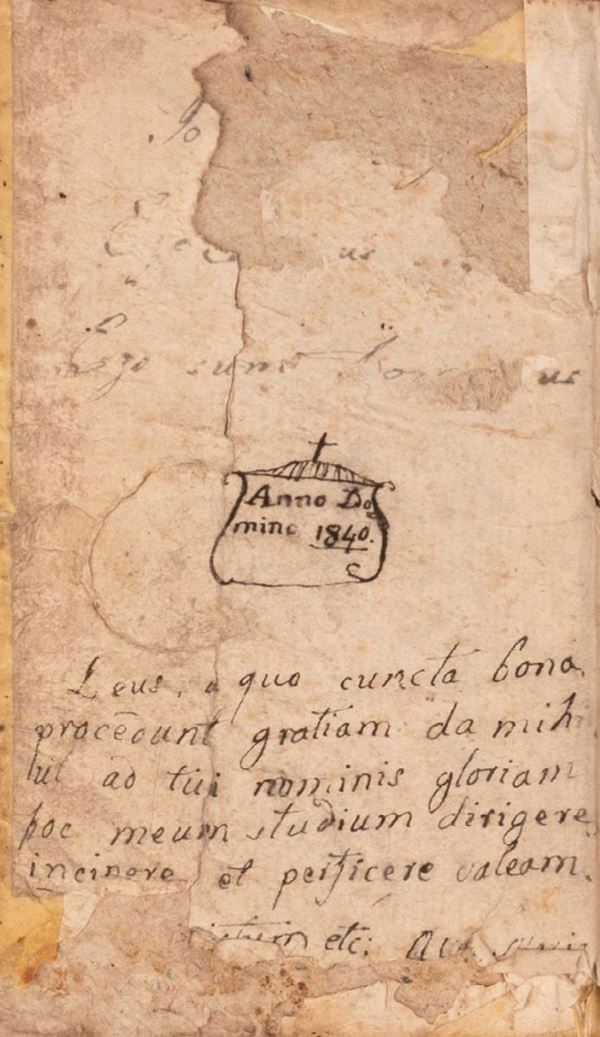 Ego sum
us
Anno Do
mino 1840.
Deus, a quo cuncta bona
procedunt gratiam da mihi
ut ad tui nominis gloriam
hoc meum studium dirigere
incipere et perficere valeam.
etc: Ave